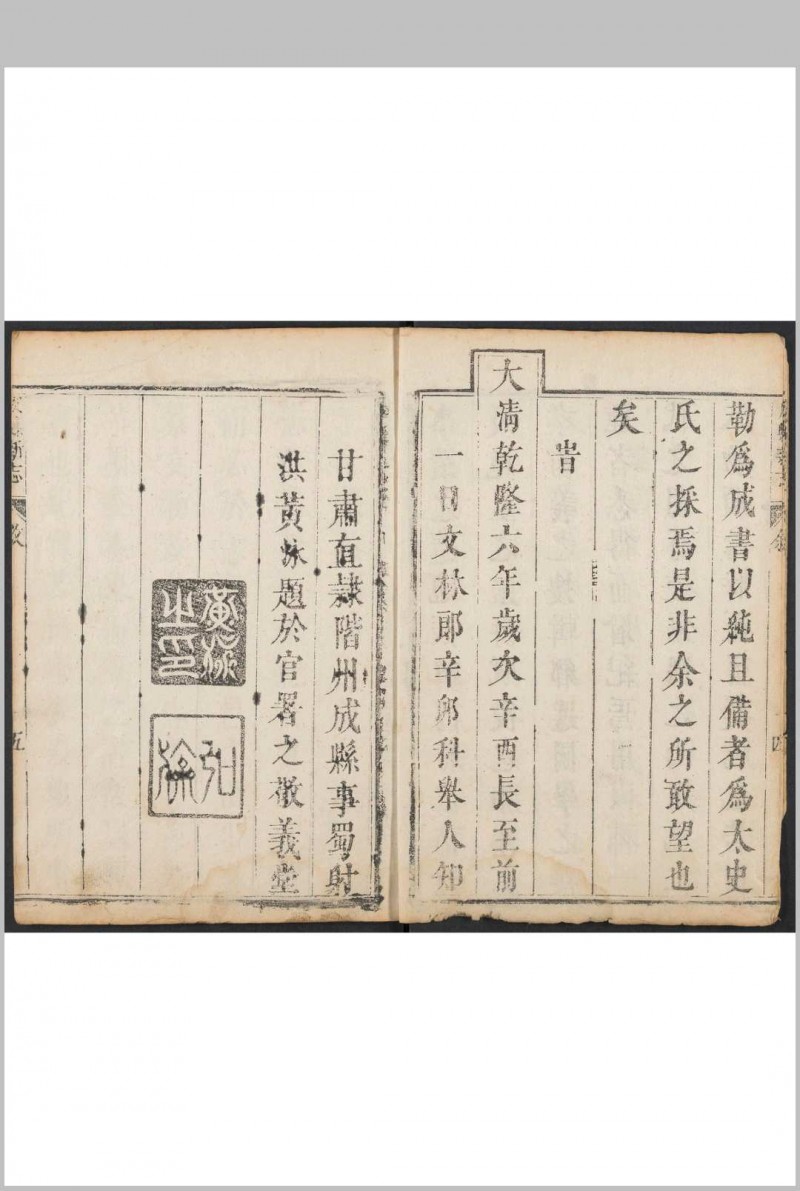 勒爲成書以純且備者爲太史
氏之採焉是非余之所敢望也
矣
旹
大清乾隆六年歲次辛酉長至前
一日文林郎辛卯科舉人知
甘肅直隸階州成縣事蜀射
洪黃泳題於官署之敬義堂
黃泳之印
新志
五
四